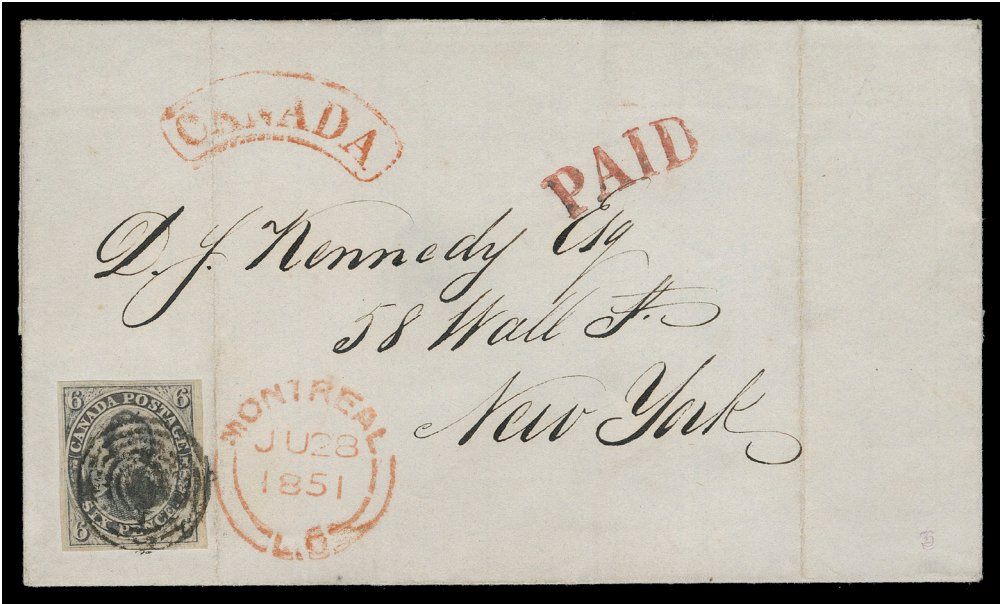 CANADA
PAID
D. J. Kennedy Esq
58 Wall St.
New York
6 6
CANADA POSTAGE
SIX PENCE
6
MONTREAL
JU 28
1851
L.C.